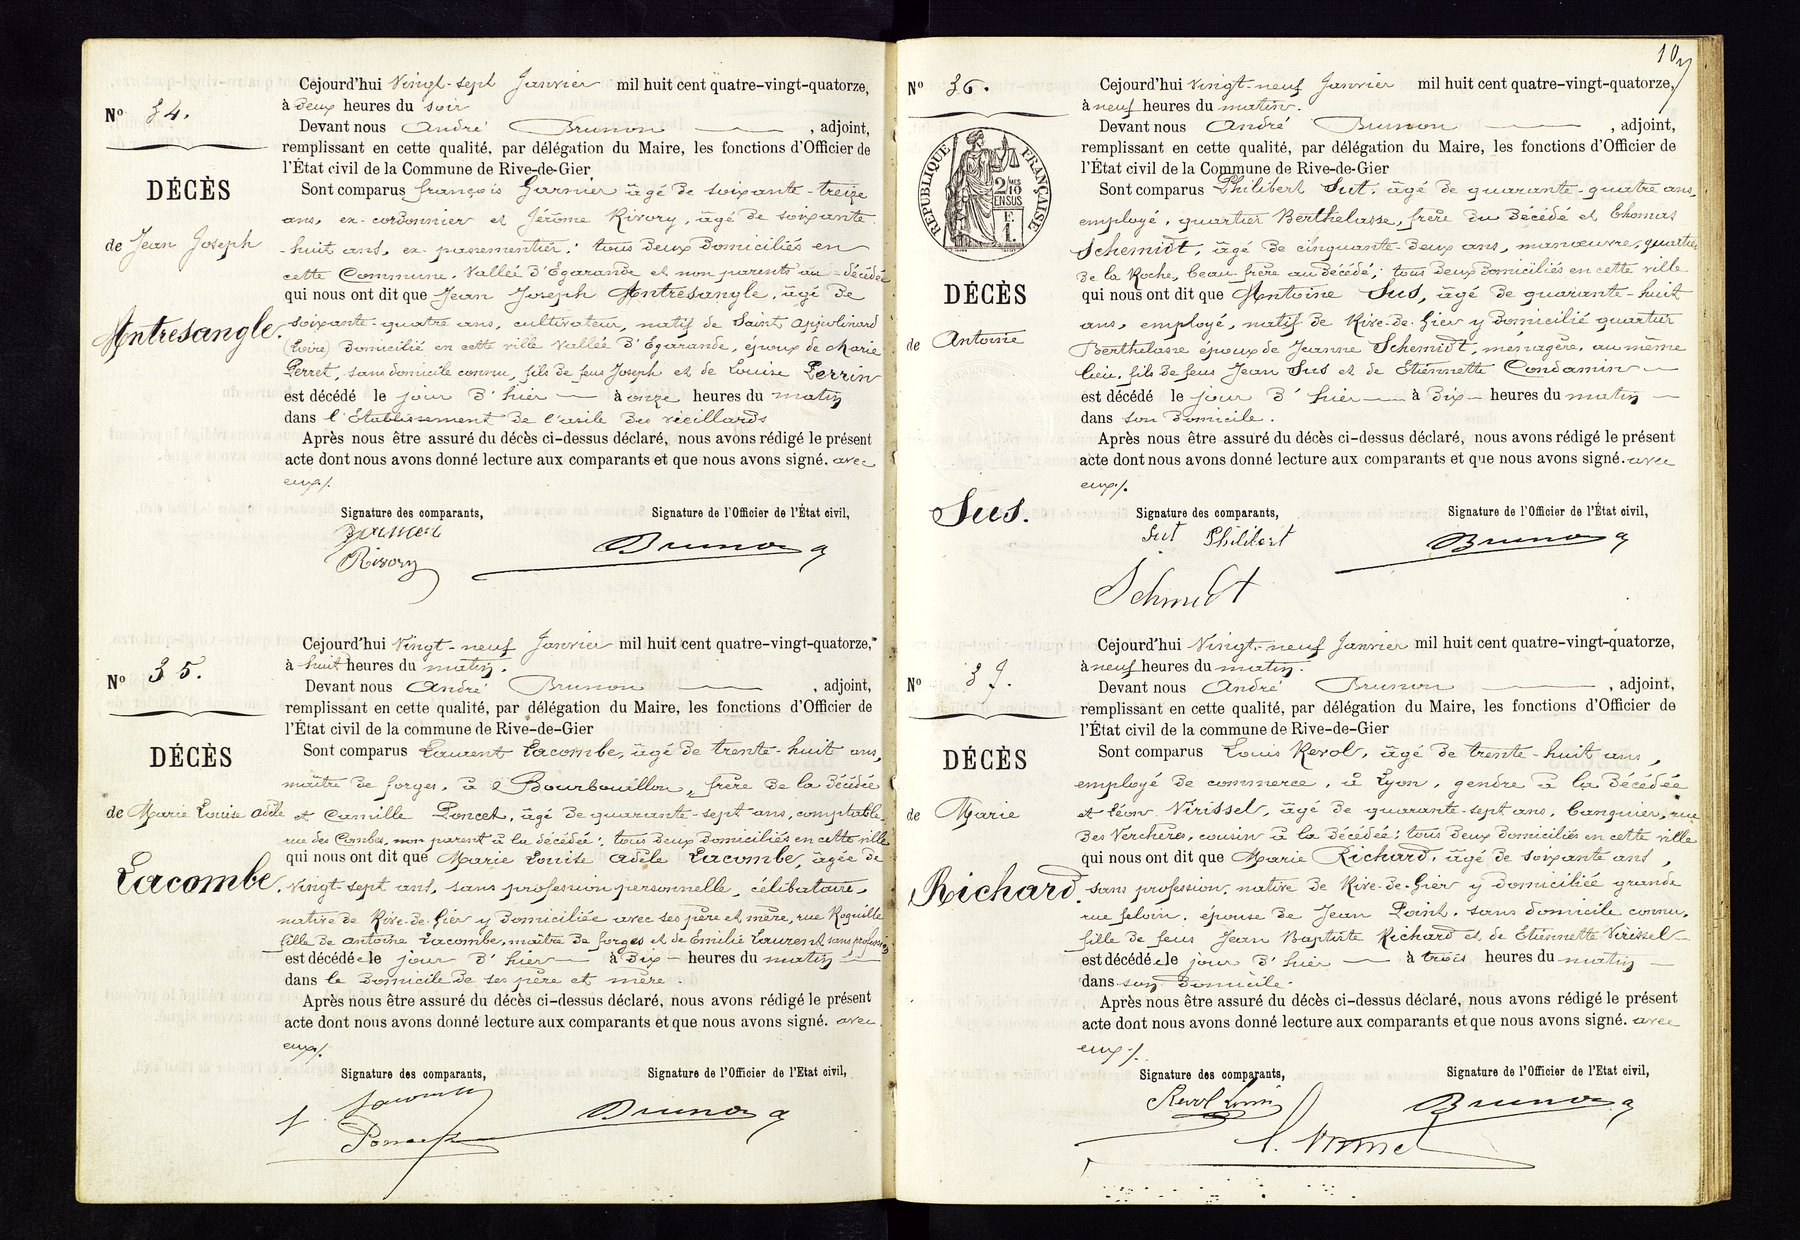 Cejourd'hui Vingt-sept Janvier mil huit cent quatre-vingt-quatorze,
No 34.
à deux heures du soir
Devant nous André Brunon , adjoint,
remplissant en cette qualité, par délégation du Maire, les fonctions d'Officier de
l'État civil de la Commune de Rive-de-Gier
DÉCÈS
Sont comparus François Garnier âgé de soixante-treize
ans, ex-cordonnier et Jérôme Rivory, âgé de soixante
de Jean Joseph
-huit ans, ex-passementier; tous deux domiciliés en
cette Commune, Vallée d'Egarande et non parents au décédé
qui nous ont dit que Jean Joseph Antresangle, âgé de
Antresangle.
soixante-quatre ans, cultivateur, natif de Saint Appolinard
(Loire) domicilié en cette ville Vallée d'Egarande, époux de Marie
Perret, sans domicile connu, fils de feus Joseph et de Louise Perrin
est décédé le jour d'hier à onze heures du matin
dans l'Etablissement de l'asile des vieillards
Après nous être assuré du décès ci-dessus déclaré, nous avons rédigé le présent
acte dont nous avons donné lecture aux comparants et que nous avons signé. avec
eux/.
Signature des comparants, Signature de l'Officier de l'État civil,
Garnier
Rivory
Brunon
Cejourd'hui Vingt-neuf Janvier mil huit cent quatre-vingt-quatorze,
No 35.
à huit heures du matin.
Devant nous André Brunon , adjoint,
remplissant en cette qualité, par délégation du Maire, les fonctions d'Officier de
l'État civil de la commune de Rive-de-Gier
DÉCÈS
Sont comparus Laurent Lacombe, âgé de trente-huit ans,
maître de forges, à Bourbouillon, frère de la décédée
de Marie Louise Adèle
et Camille Poncet, âgé de quarante-sept ans, comptable,
rue des Combes, non parent à la décédée; tous deux domiciliés en cette ville
qui nous ont dit que Marie Louise Adèle Lacombe, âgée de
Lacombe.
vingt-sept ans, sans profession personnelle, célibataire,
native de Rive-de-Gier y domiciliée avec ses père et mère, rue Roquille
fille de Antoine Lacombe, maître de forges et de Emilie Laurent sans profession
est décédée le jour d'hier à dix heures du matin
dans le domicile de ses père et mère.
Après nous être assuré du décès ci-dessus déclaré, nous avons rédigé le présent
acte dont nous avons donné lecture aux comparants et que nous avons signé. avec
eux/.
Signature des comparants, Signature de l'Officier de l'État civil,
Lacombe
Poncet
Brunon
107
Cejourd'hui Vingt-neuf Janvier mil huit cent quatre-vingt-quatorze,
No 36.
à neuf heures du matin.
Devant nous André Brunon , adjoint,
remplissant en cette qualité, par délégation du Maire, les fonctions d'Officier de
l'État civil de la Commune de Rive-de-Gier
RÉPUBLIQUE FRANÇAISE
2/10 MES
EN SUS
Sont comparus Philibert Sut, âgé de quarante-quatre ans,
employé, quartier Berthelasse, frère du décédé et Thomas
Schemidt, âgé de cinquante-deux ans, manœuvre, quartier
de la Roche, beau-frère au décédé; tous deux domiciliés en cette ville
DÉCÈS
qui nous ont dit que Antoine Sus, âgé de quarante-huit
ans, employé, natif de Rive-de-Gier y domicilié quartier
de Antoine
Berthelasse époux de Jeanne Schemidt, ménagère, au même
lieu, fils de feus Jean Sus et de Etiennette Condamin
est décédé le jour d'hier à dix heures du matin
dans son domicile.
Après nous être assuré du décès ci-dessus déclaré, nous avons rédigé le présent
acte dont nous avons donné lecture aux comparants et que nous avons signé. avec
eux/.
Sus.
Signature des comparants, Signature de l'Officier de l'État civil,
Sut Philibert
Schmidt
Brunon
Cejourd'hui Vingt-neuf Janvier mil huit cent quatre-vingt-quatorze,
No 37.
à neuf heures du matin.
Devant nous André Brunon , adjoint,
remplissant en cette qualité, par délégation du Maire, les fonctions d'Officier de
l'État civil de la commune de Rive-de-Gier
DÉCÈS
Sont comparus Louis Revol, âgé de trente-huit ans,
employé de commerce, à Lyon, gendre à la décédée
de Marie
et Léon Virissel, âgé de quarante-sept ans, banquier, rue
des Verchères, cousin à la décédée; tous deux domiciliés en cette ville
qui nous ont dit que Marie Richard, âgé de soixante ans,
Richard.
sans profession, native de Rive-de-Gier y domiciliée grande
rue Feloin, épouse de Jean Point, sans domicile connu,
fille de feus Jean Baptiste Richard et de Etiennette Virissel
est décédée le jour d'hier à trois heures du matin
dans son domicile.
Après nous être assuré du décès ci-dessus déclaré, nous avons rédigé le présent
acte dont nous avons donné lecture aux comparants et que nous avons signé. avec
eux/.
Signature des comparants, Signature de l'Officier de l'État civil,
Revol Louis
Brunon